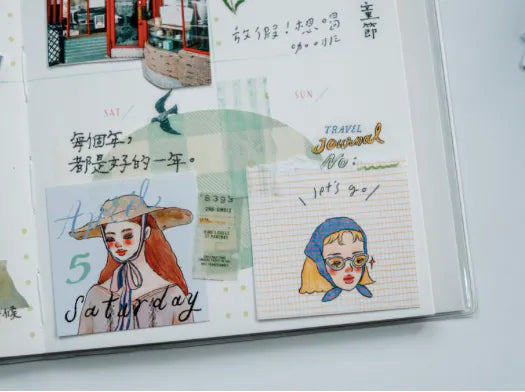 放假！想喝
咖啡
童
節
SAT/
SUN/
每個年，
都是好的一年。
TRAVEL
Journal
No:
let's go
April
5
Saturday
8393